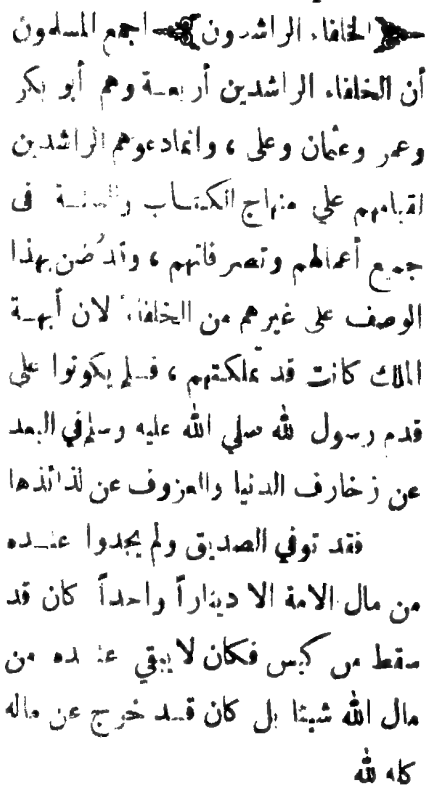 ﴿الخلفاء الراشدون﴾ اجمع المسلمون
أن الخلفاء الراشدين أربعة وهم أبو بكر
وعمر وعثمان وعلى ، وانما دعوهم الراشدين
لقيامهم علي منهاج الكتاب والسنة فى
جميع أعمالهم وتصرفاتهم ، وقد ضن بهذا
الوصف على غيرهم من الخلفاء لان أبهة
الملك كانت قد تملكتهم ، فلم يكونوا علي
قدم رسول لله صلي الله عليه وسلم في البعد
عن زخارف الدنيا والعزوف عن لذائذها
فقد توفي الصديق ولم يجدوا عنده
من مال الامة الا ديناراً واحداً كان قد
سقط من كيس فكان لا يبقي عنده من
مال الله شيئا بل كان قد خرج عن ماله
كله لله